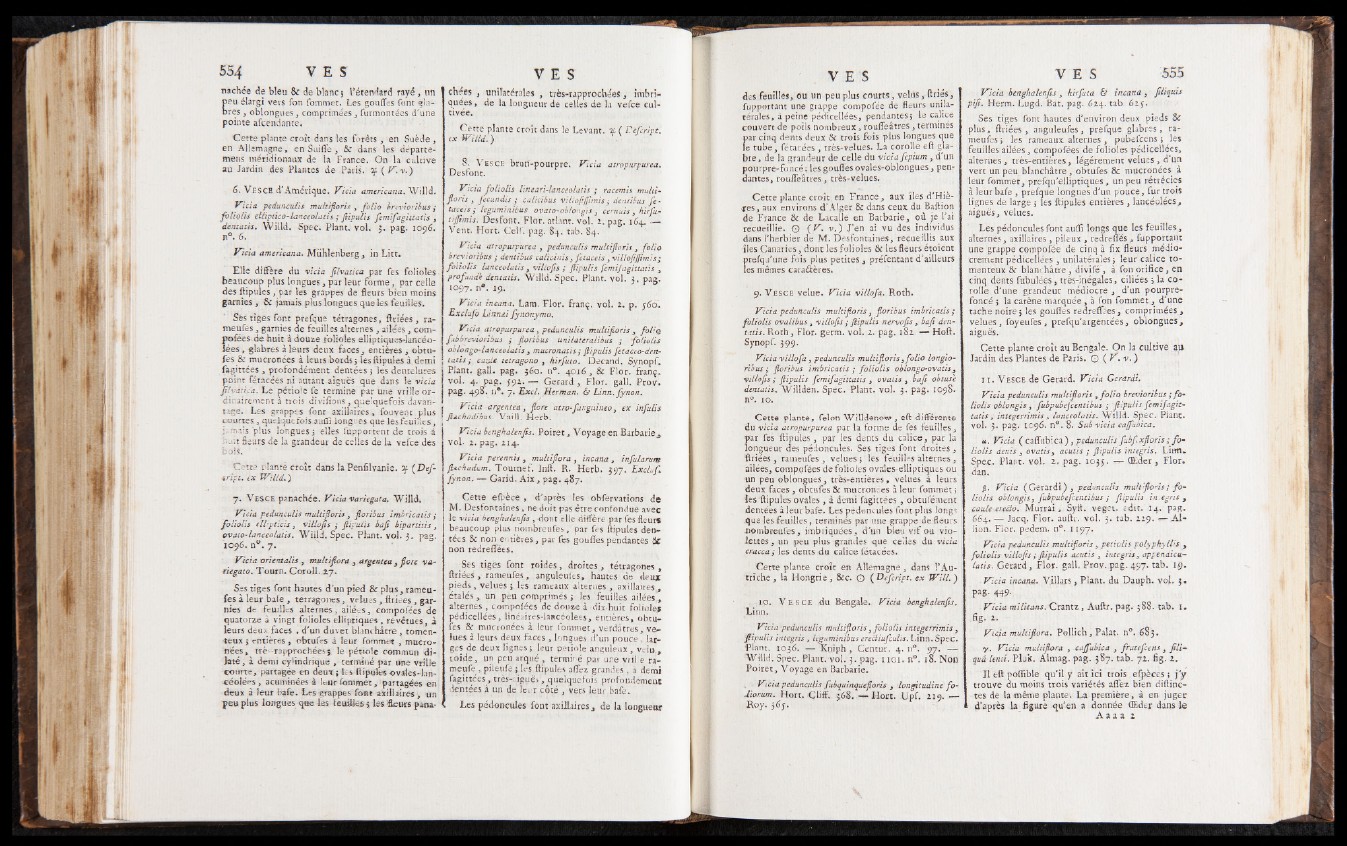 554 VES
nachée de bleu & de blanc; l'étendard rayé, un
peu élargi vers son sommet. Les gousses sont gla-
bres, oblongues, comprimées, surmontées d'une
pointe ascendante.
Cette plante croît dans les forêts, en Suède,
en Allemagne, en Suisse, & dans les départe-
mens méridionaux de la France. On la cultive
au Jardin des Plantes de Paris. ♃ (V. v.)
6. VESCE d'Amérique. Vicia americana. Willd.
Vicia pedunculis multifloris, folio brevioribus;
foliolis elliptico-lanceolatis; stipulis semisagittatis,
dentatis. Willd. Spec. Plant. vol. 3. pag. 1096.
n°. 6.
Vicia americana. Mühlenberg, in Litt.
Elle diffère du vicia silvatica par ses folioles
beaucoup plus longues, par leur forme, par celle
des stipules, par les grappes de fleurs bien moins
garnies, & jamais plus longues que les feuilles.
Ses tiges sont presque tétragones, striées, ra-
meuses, garnies de feuilles alternes, ailées, com-
posées de huit à douze folioles elliptiques-lancéo-
lées, glabres à leurs deux faces, entières, obtu-
ses & mucronées à leurs bords; les stipules à demi
sagittées, profondément dentées; les dentelures
point sétacées ni autant aiguës que dans le vicia
silvatica. Le pétiole se termine par une vrille or-
dinairement à trois divisions, quelquefois davan-
tage. Les grappes sont axillaires, souvent plus
courtes, quelquefois aussi longues que les feuilles,
jamais plus longues; elles supportent de trois à
huit fleurs de la grandeur de celles de la vesce des
bois.
Cette plante croît dans la Pensilvanie. ♃ (Des-
cript. ex Willd.)
7. VESCE panachée. Vicia variegata. Willd.
Vicia pedunculis multifloris, floribus imbricatis;
foliolis ellipticis, villosis; stipulis basi bipartitis,
ovato-lanceolatis. Willd. Spec. Plant. vol. 3. pag.
1096. n°. 7.
Vicia orientalis, multiflora, argentea, flore va-
riegato. Tourn. Coroll. 27.
Ses tiges sont hautes d'un pied & plus, rameu-
ses à leur base, tetragones, velues, striées, gar-
nies de feuilles alternes, ailées, composées de
quatorze à vingt folioles elliptiques, revêtues, à
leurs deux faces, d'un duvet blanchâtre, tomen-
teux; entières, obtuses à leur sommet, mucro-
nées, très-rapprochées; le pétiole commun di-
laté, à demi cylindrique, terminé par une vrille
courte, partagée en deux; les stipules ovales-lan-
céolées, acuminées à leur sommet, partagées en
deux à leur base. Les grappes sont axillaires, un
peu plus longues que les feuilles; les fleurs pana-
VES
chées, unilatérales, très-rapprochées, imbri-
quées, de la longueur de celles de la vesce cul-
tivée.
Cette plante croît dans le Levant. ♃ (Descript.
ex Willd.)
8. VESCE brun-pourpre. Vicia atropurpurea.
Desfont.
Vicia foliolis lineari-lanceolatis; racemis multi-
floris, secundis; calicibus villosissimis, dentibus se-
taceis; leguminibus ovato-oblongis, cernuis, hirsu-
tissimis. Desfont. Flor. atlant. vol. 2. pag. 164. —
Vent. Hort. Cels. pag. 84. tab. 84.
Vicia atropurpurea, pedunculis multifloris, folio
brevioribus; dentibus calicinis, setaceis, villosissimis;
foliolis lanceolatis, villosis; stipulis semisagittatis,
profundè dentatis. Willd. Spec. Plant. vol. 3. pag.
1097. n°. 19.
Vicia incana. Lam. Flor. franç. vol. 2. p. 560.
Excluso Linnei synonymo.
Vicia atropurpurea, pedunculis multifloris, folio
subbrevioribus; floribus unilateralibus; foliolis
oblongo-lanceolatis, mucronatis; stipulis setaceo-den-
tatis; caule tetragono, hirsuto. Decand. Synops.
Plant. gall. pag. 360. n°. 4016, & Flor. franç.
vol. 4. pag. 592. — Gerard, Flor. gall. Prov.
pag. 498. n°. 7. Excl. Herman. & Linn. synon.
Vicia argentea, flore atro-sanguineo, ex insulis
stachadibus. Vaill. Herb.
Vicia benghalensis. Poiret, Voyage en Barbarie,
vol. 2. pag. 214.
Vicia perennis, multiflora, incana, insularum
stachadum. Tournef. Inst. R. Herb. 397. Exclus.
synon. — Garid. Aix, pag. 487.
Cette espèce, d'après les observations de
M. Desfontaines, ne doit pas être confondue avec
le vicia benghalensis, dont elle diffère par ses fleurs
beaucoup plus nombreuses, par ses stipules den-
tées & non entières, par ses gousses pendantes &
non redressées.
Ses tiges sont roides, droites, tétragones,
striées, rameuses, anguleuses, hautes de deux
pieds, velues; les rameaux alternes, axillaires,
étalés, un peu comprimés; les feuilles ailées,
alternes, composées de douze à dix-huit folioles
pédicellées, linéaires-lancéolées, entières, obtu-
ses & mucronées à leur sommet, verdâtres, ve-
lues à leurs deux faces, longues d'un pouce, lar-
ges de deux lignes; leur pétiole anguleux, velu,
roide, un peu arqué, terminé par une vrille ra-
meuse, pileuse; les stipules assez grandes, à demi
sagittées, très-aiguës, quelquefois profondément
dentées à un de leur côté, vers leur base.
Les pédoncules sont axillaires, de la longueur
VES
des feuilles, ou un peu plus courts, velus, striés,
supportant une grappe composée de fleurs unila-
térales, à peine pédicellées, pendantes; le calice
couvert de poils nombreux, roussâtres, terminés
par cinq dents deux & trois fois plus longues que
le tube, sétacées, très-velues. La corolle est gla-
bre, de la grandeur de celle du vicia sepium, d'un
pourpre-foncé; les gousses ovales-oblongues, pen-
dantes, roussâtres, très-velues.
Cette plante croît en France, aux îles d'Hiè-
res, aux environs d'Alger & dans ceux du Bastion
de France & de Lacalle en Barbarie, où je l'ai
recueillie. ☉ (V. v.) J'en ai vu des individus
dans l'herbier de M. Desfontaines, recueillis aux
îles Canaries, dont les folioles & les fleurs étoient
presqu'une fois plus petites, présentant d'ailleurs
les mêmes caractères.
9. VESCE velue. Vicia villosa. Roth.
Vicia pedunculis multifloris, floribus imbricatis;
foliolis ovalibus, villosis; stipulis nervosis, basi den-
tatis. Roth, Flor. germ. vol. 2. pag. 182. — Hoft.
Synops. 399.
Vicia villosa, pedunculis multifloris, folio longio-
ribus; floribus imbricatis; foliolis oblongo-ovatis,
villosis; stipulis semisagittatis, ovatis, basi obtusè
dentatis. Willden. Spec. Plant. vol. 3. pag. 1098.
n°. 10.
Cette plante, selon Willdenow, est différente
du vicia atropurpurea par la forme de ses feuilles,
par ses stipules, par les dents du calice, par la
longueur des pédoncules. Ses tiges sont droites,
striées, rameuses, velues; les feuilles alternes,
ailées, composées de folioles ovales-elliptiques ou
un peu oblongues, très-entières, velues à leurs
deux faces, obtuses & mucronées à leur sommet;
les stipules ovales, à demi sagittées, obtusément
dentées à leur base. Les pédoncules sont plus longs
que les feuilles, terminés par une grappe de fleurs
nombreuses, imbriquées, d'un bleu vif ou vio-
lettes, un peu plus grandes que celles du vicia
cracca; les dents du calice sétacées.
Cette plante croît en Allemagne, dans l'Au-
triche, la Hongrie, &c. ☉ (Descript. ex Will.)
10. VESCE du Bengale. Vicia benghalensis.
Linn.
Vicia pedunculis multifloris, foliolis integerrimis,
stipulis integris, leguminibus erectiusculis. Linn. Spec.
Plant. 1036. — Kniph, Centur. 4. n°. 97. —
Willd. Spec. Plant. vol. 3. pag. 1101. n°. 18. Non
Poiret, Voyage en Barbarie.
Vicia pedunculis subquinquefloris, longitudine fo-
liorum. Hort. Cliff. 368. — Hort. Ups. 219. —
Roy. 365.
VES 555
Vicia benghalensis, hirsuta & incana, siliquis
pisi. Herm. Lugd. Bat. pag. 624. tab. 625.
Ses tiges sont hautes d'environ deux pieds &
plus, striées, anguleuses, presque glabres, ra-
meuses; les rameaux alternes, pubescens; les
feuilles ailées, composées de folioles pédicellées,
alternes, très-entières, légérement velues, d'un
vert un peu blanchâtre, obtuses & mucronées à
leur sommet, presqu'elliptiques, un peu rétrécies
à leur base, presque longues d'un pouce, sur trois
lignes de large; les stipules entières, lancéolées,
aiguës, velues.
Les pédoncules sont aussi longs que les feuilles,
alternes, axillaires, pileux, redressés, supportant
une grappe composée de cinq à six fleurs médio-
crement pédicellées, unilatérales; leur calice to-
menteux & blanchâtre, divisé, à son orifice, en
cinq dents subulées, très-inégales, ciliées; la co-
rolle d'une grandeur médiocre, d'un pourpre-
foncé; la carène marquée, à son sommet, d'une
tache noire; les gousses redressées, comprimées,
velues, soyeuses, presqu'argentées, oblongues,
aiguës.
Cette plante croît au Bengale. On la cultive au
Jardin des Plantes de Paris. ☉ (V. v.)
11. VESCE de Gerard. Vicia Gerardi.
Vicia pedunculis multifloris, folio brevioribus; fo-
liolis oblongis, subpubescentibus; stipulis semisagit-
tatis, integerrimis, lanceolatis. Willd. Spec. Plant.
vol. 3. pag. 1096. n°. 8. Sub vicia cassubica.
α. Vicia (cassubica), pedunculis subsexfloris; fo-
liolis denis, ovatis, acutis; stipulis integris. Linn.
Spec. Plant. vol. 2. pag. 1035. — Œder, Flor.
dan.
β. Vicia (Gerardi), pedunculis multifloris; fo-
liolis oblongis, subpubescentibus; stipulis integris,
caule erecto. Murrai, Syst. veget. edit. 14. pag.
664. — Jacq. Flor. austr. vol. 3. tab. 229. — Al-
lion. Flor. pedem. n°. 1197.
Vicia pedunculis multifloris, petiolis polyphyllis,
foliolis villosis, stipulis acutis, integris, appendicu-
latis. Gerard, Flor. gall. Prov. pag. 497. tab. 19.
Vicia incana. Villars, Plant. du Dauph. vol. 3.
pag. 449.
Vicia militans. Crantz, Austr. pag. 388. tab. 1.
fig. 2.
Vicia multiflora. Pollich, Palat. n°. 683.
γ. Vicia multiflora, cassubica, frutescens, sili-
quâ lenti. Pluk. Almag. pag. 387. tab. 72. fig. 2.
Il est possible qu'il y ait ici trois espèces; j'y
trouve du moins trois variétés assez bien distinc-
tes de la même plante. La première, à en juger
d'après la figure qu'en a donnée Œder dans le
Aaaa 2